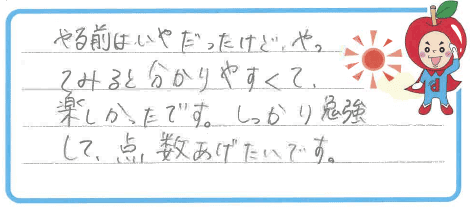 やる前はいやだったけど、やっ
てみると分かりやすくて、
楽しかったです。しっかり勉強
して、点数あげたいです。